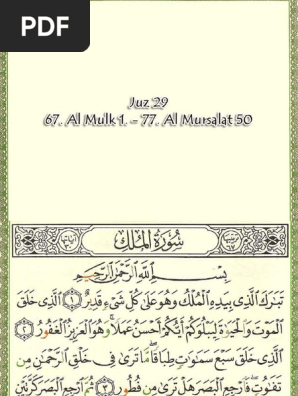 PDF
Juz 29
67. Al Mulk 1. – 77. Al Mursalat 50
سُورَةُ الْمُلْكِ
بِسْمِ اللَّهِ الرَّحْمَٰنِ الرَّحِيمِ
تَبَارَكَ الَّذِي بِيَدِهِ الْمُلْكُ وَهُوَ عَلَىٰ كُلِّ شَيْءٍ قَدِيرٌ ١ الَّذِي خَلَقَ
الْمَوْتَ وَالْحَيَاةَ لِيَبْلُوَكُمْ أَيُّكُمْ أَحْسَنُ عَمَلًا وَهُوَ الْعَزِيزُ الْغَفُورُ ٢
الَّذِي خَلَقَ سَبْعَ سَمَاوَاتٍ طِبَاقًا مَا تَرَىٰ فِي خَلْقِ الرَّحْمَٰنِ مِنْ
تَفَاوُتٍ فَارْجِعِ الْبَصَرَ هَلْ تَرَىٰ مِنْ فُطُورٍ ٣ ثُمَّ ارْجِعِ الْبَصَرَ كَرَّتَيْنِ